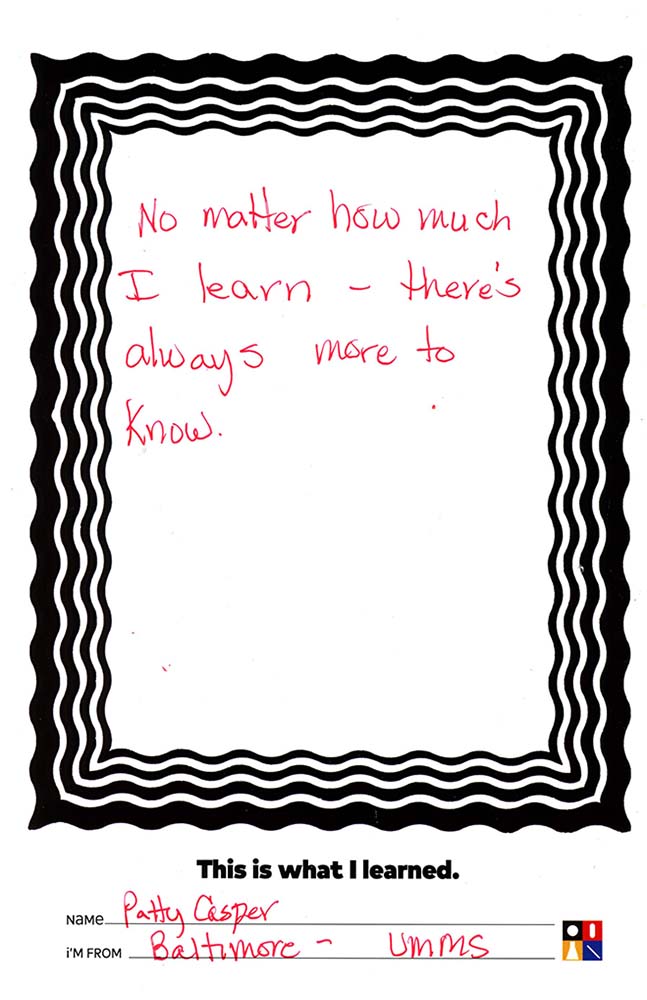 No matter how much
I learn – there's
always more to
know.
This is what I learned.
Name Patty Casper
i'm from Baltimore – UMMS